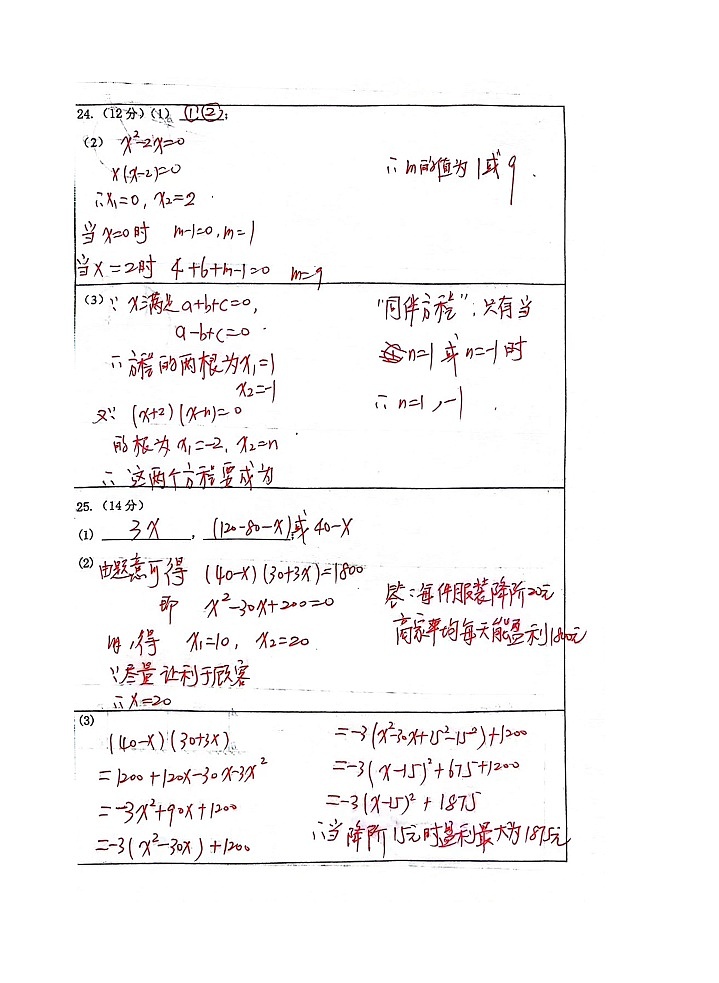 24. (12分)(1) ①②;
(2) x²-2x=0
x(x-2)=0
∴x₁=0, x₂=2
当x=0时 m-1=0, m=1
当x=2时 4+6+m-1=0 m=9
∴m的值为1或9.
(3) ∵x满足a+b+c=0,
a-b+c=0
∴方程的两根为x₁=1
x₂=-1
又∵(x+2)(x-n)=0
的根为x₁=-2, x₂=n
∴这两个方程要成为
"同伴方程",只有当
n=1或n=-1时
∴n=1,-1.
25. (14分)
(1) 3x, (120-80-x)或40-x
(2) 由题意可得 (40-x)(30+3x)=1800
即 x²-30x+200=0
得 x₁=10, x₂=20
∵尽量让利于顾客
∴x=20
答:每件服装降价20元
商家平均每天能盈利1800元
(3)
(40-x)(30+3x)
=1200+120x-30x-3x²
=-3x²+90x+1200
=-3(x²-30x)+1200
=-3(x²-30x+15²-15²)+1200
=-3(x-15)²+675+1200
=-3(x-15)²+1875
∴当降价15元时盈利最大为1875元